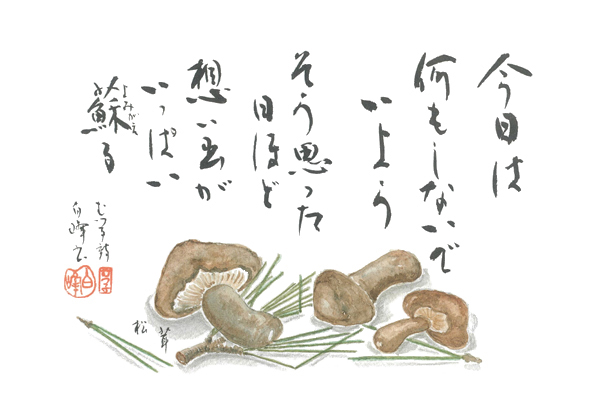 今日は
何もしないで
いよう
そう思った
日ほど
想い出が
いっぱい
蘇る
よみがえ
松茸